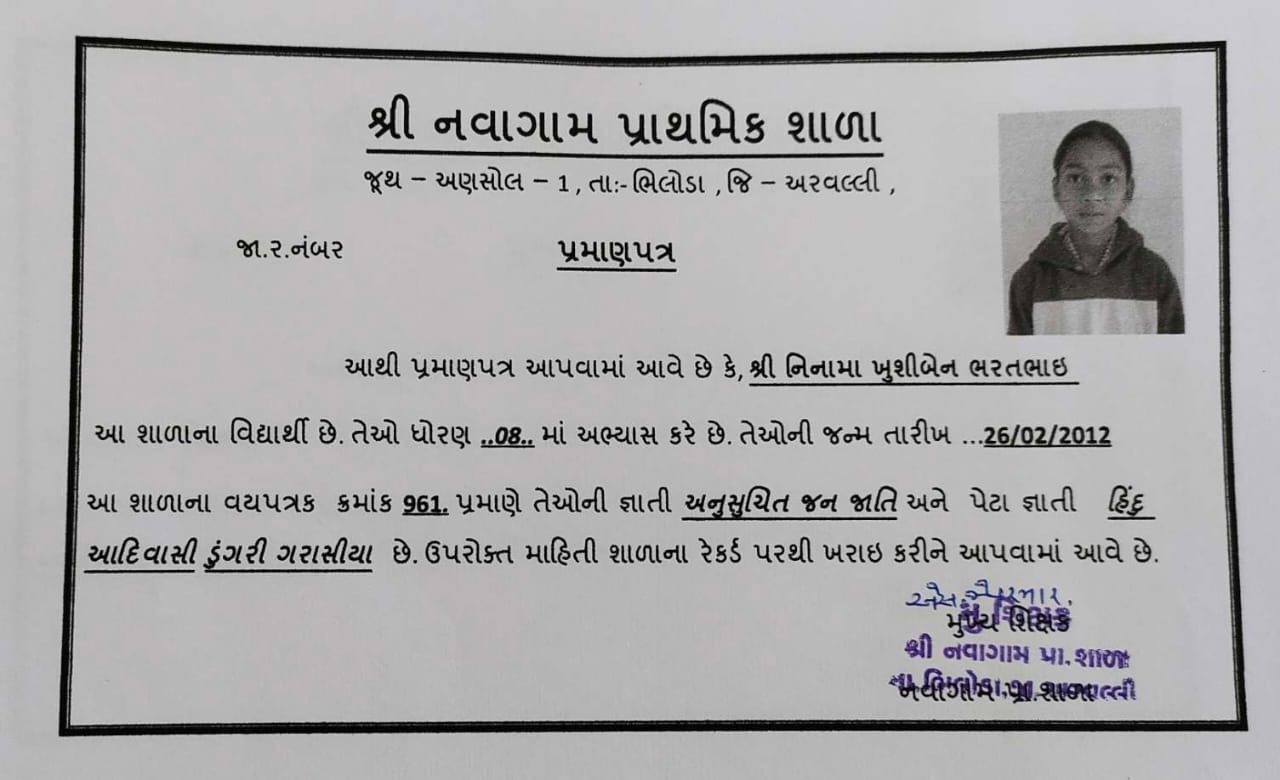 શ્રી નવાગામ પ્રાથમિક શાળા
જૂથ – અણસોલ – 1 , તાઃ- ભિલોડા , જિ – અરવલ્લી ,
જા.ર.નંબર પ્રમાણપત્ર
આથી પ્રમાણપત્ર આપવામાં આવે છે કે, શ્રી નિનામા ખુશીબેન ભરતભાઇ
આ શાળાના વિદ્યાર્થી છે. તેઓ ધોરણ ..08.. માં અભ્યાસ કરે છે. તેઓની જન્મ તારીખ ...26/02/2012
આ શાળાના વયપત્રક ક્રમાંક 961. પ્રમાણે તેઓની જ્ઞાતી અનુસુચિત જન જાતિ અને પેટા જ્ઞાતી હિંદુ
આદિવાસી ડુંગરી ગરાસીયા છે. ઉપરોક્ત માહિતી શાળાના રેકર્ડ પરથી ખરાઇ કરીને આપવામાં આવે છે.
મુખ્ય શિક્ષક
શ્રી નવાગામ પ્રા. શાળા
નવાગામ પ્રા. શાળા